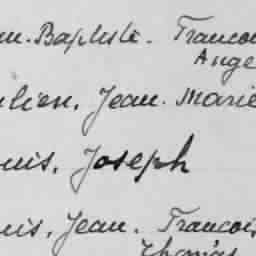 an. Baptiste. Francois
Ange
ulien, Jean. Marie
ouis, Joseph
ouis, Jean. Francois
Thomas